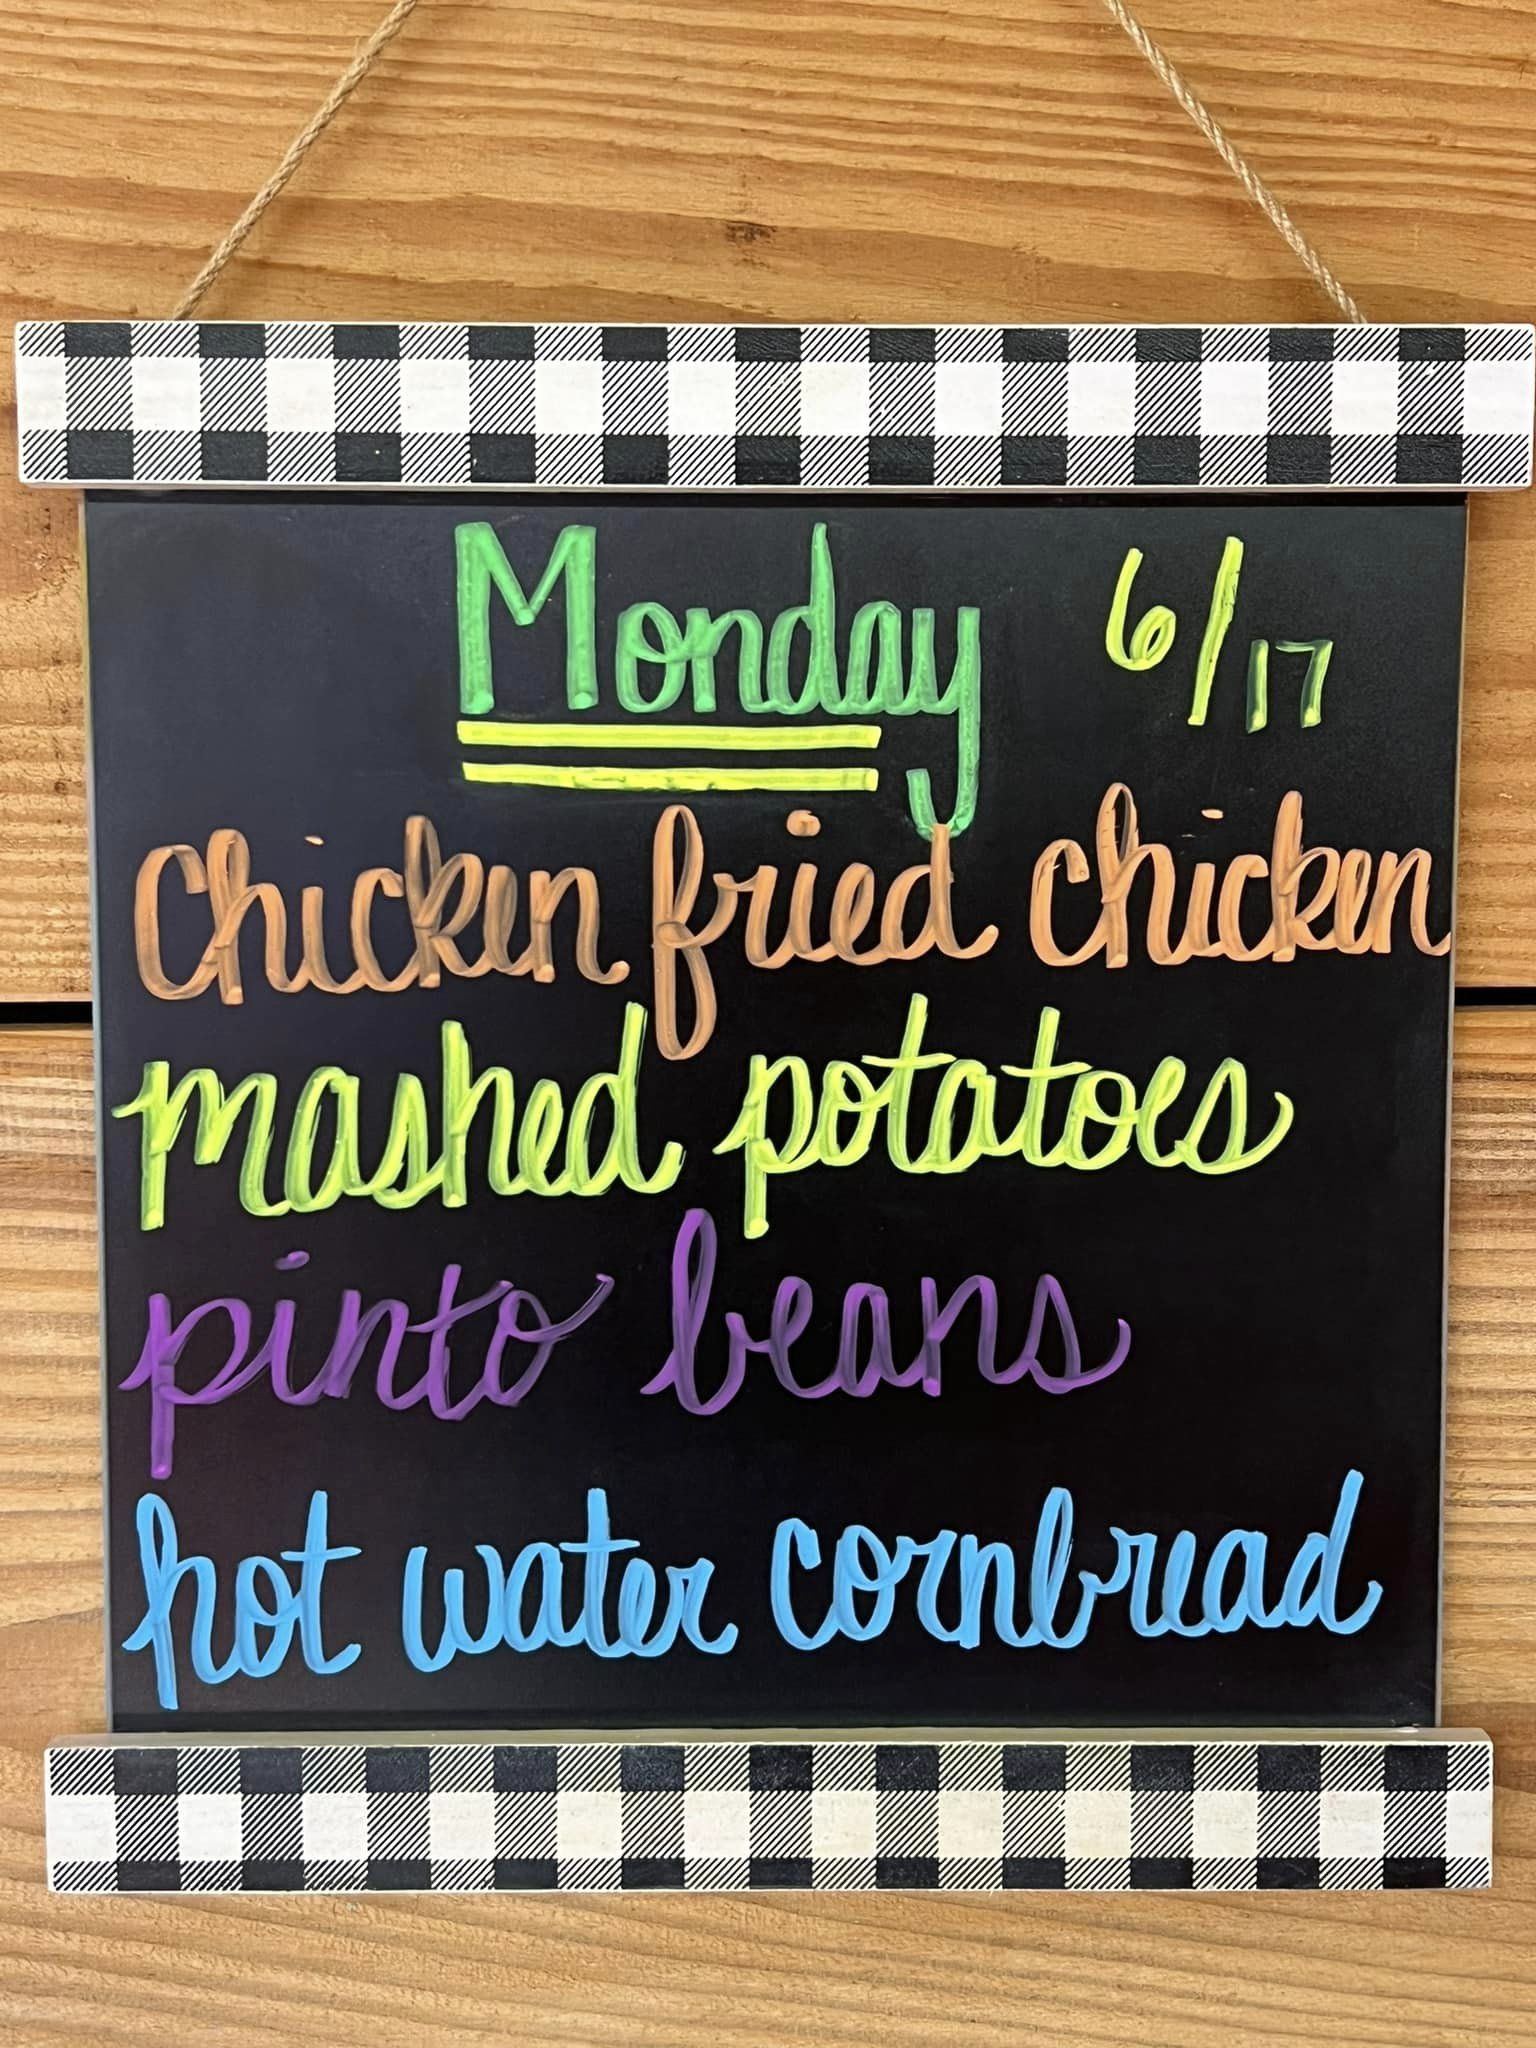 Monday 6/17
Chicken fried chicken
mashed potatoes
pinto beans
hot water cornbread